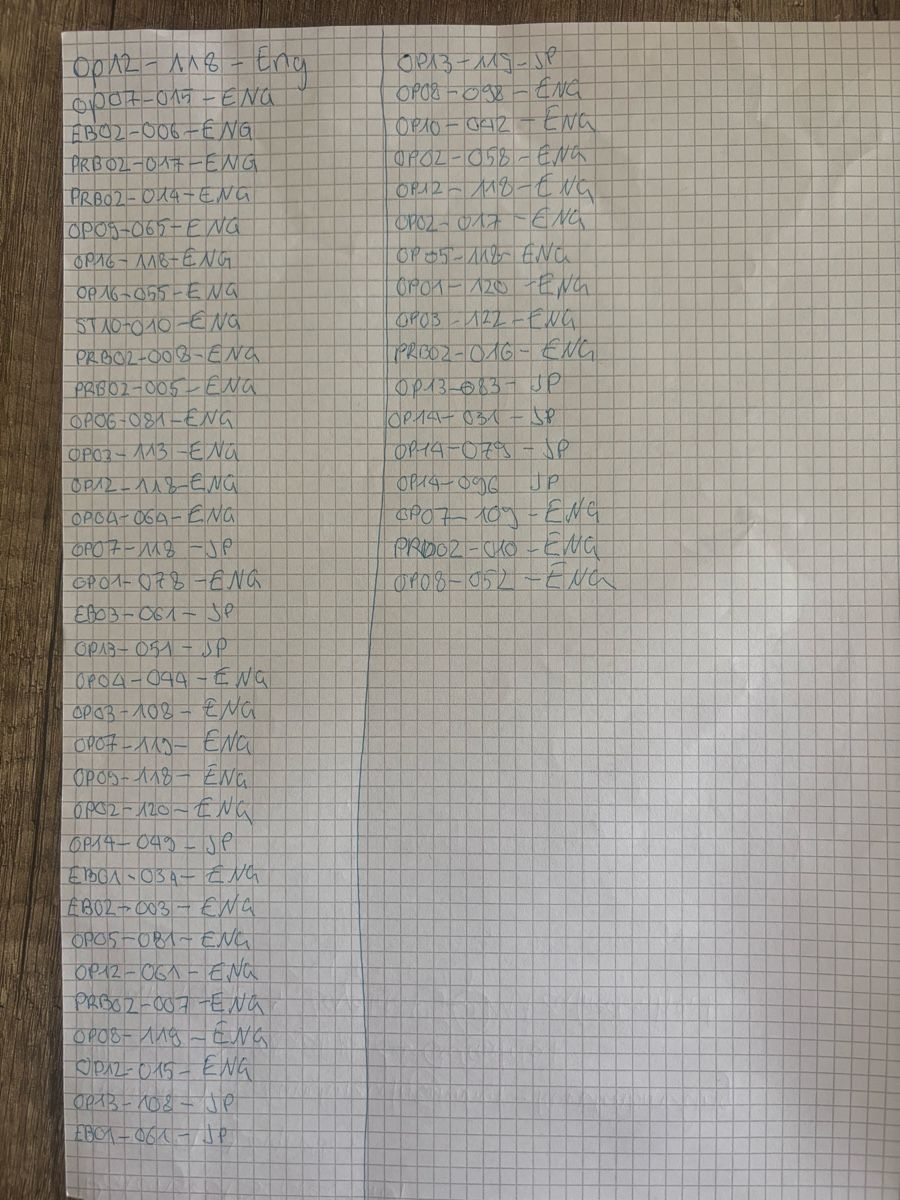 Op12-118-Eng
Op07-015-ENG
EB02-006-ENG
PRB02-017-ENG
PRB02-014-ENG
OP09-065-ENG
OP16-118-ENG
OP16-055-ENG
ST10-010-ENG
PRB02-008-ENG
PRB02-005-ENG
OP06-081-ENG
OP03-113-ENG
OP12-118-ENG
OP04-064-ENG
OP07-118-JP
OP01-078-ENG
EB03-061-JP
OP13-051-JP
OP04-044-ENG
OP03-108-ENG
OP07-119-ENG
OP09-118-ENG
OP02-120-ENG
OP14-049-JP
EB01-034-ENG
EB02-003-ENG
OP05-081-ENG
OP12-061-ENG
PRB02-007-ENG
OP08-118-ENG
OP12-015-ENG
OP13-108-JP
EB01-061-JP
OP13-119-JP
OP08-098-ENG
OP10-042-ENG
OP02-058-ENG
OP12-118-ENG
OP02-017-ENG
OP05-118-ENG
OP01-120-ENG
OP03-122-ENG
PRB02-016-ENG
OP13-083-JP
OP14-031-JP
OP14-079-JP
OP14-096 JP
OP07-109-ENG
PRB02-010-ENG
OP08-052-ENG